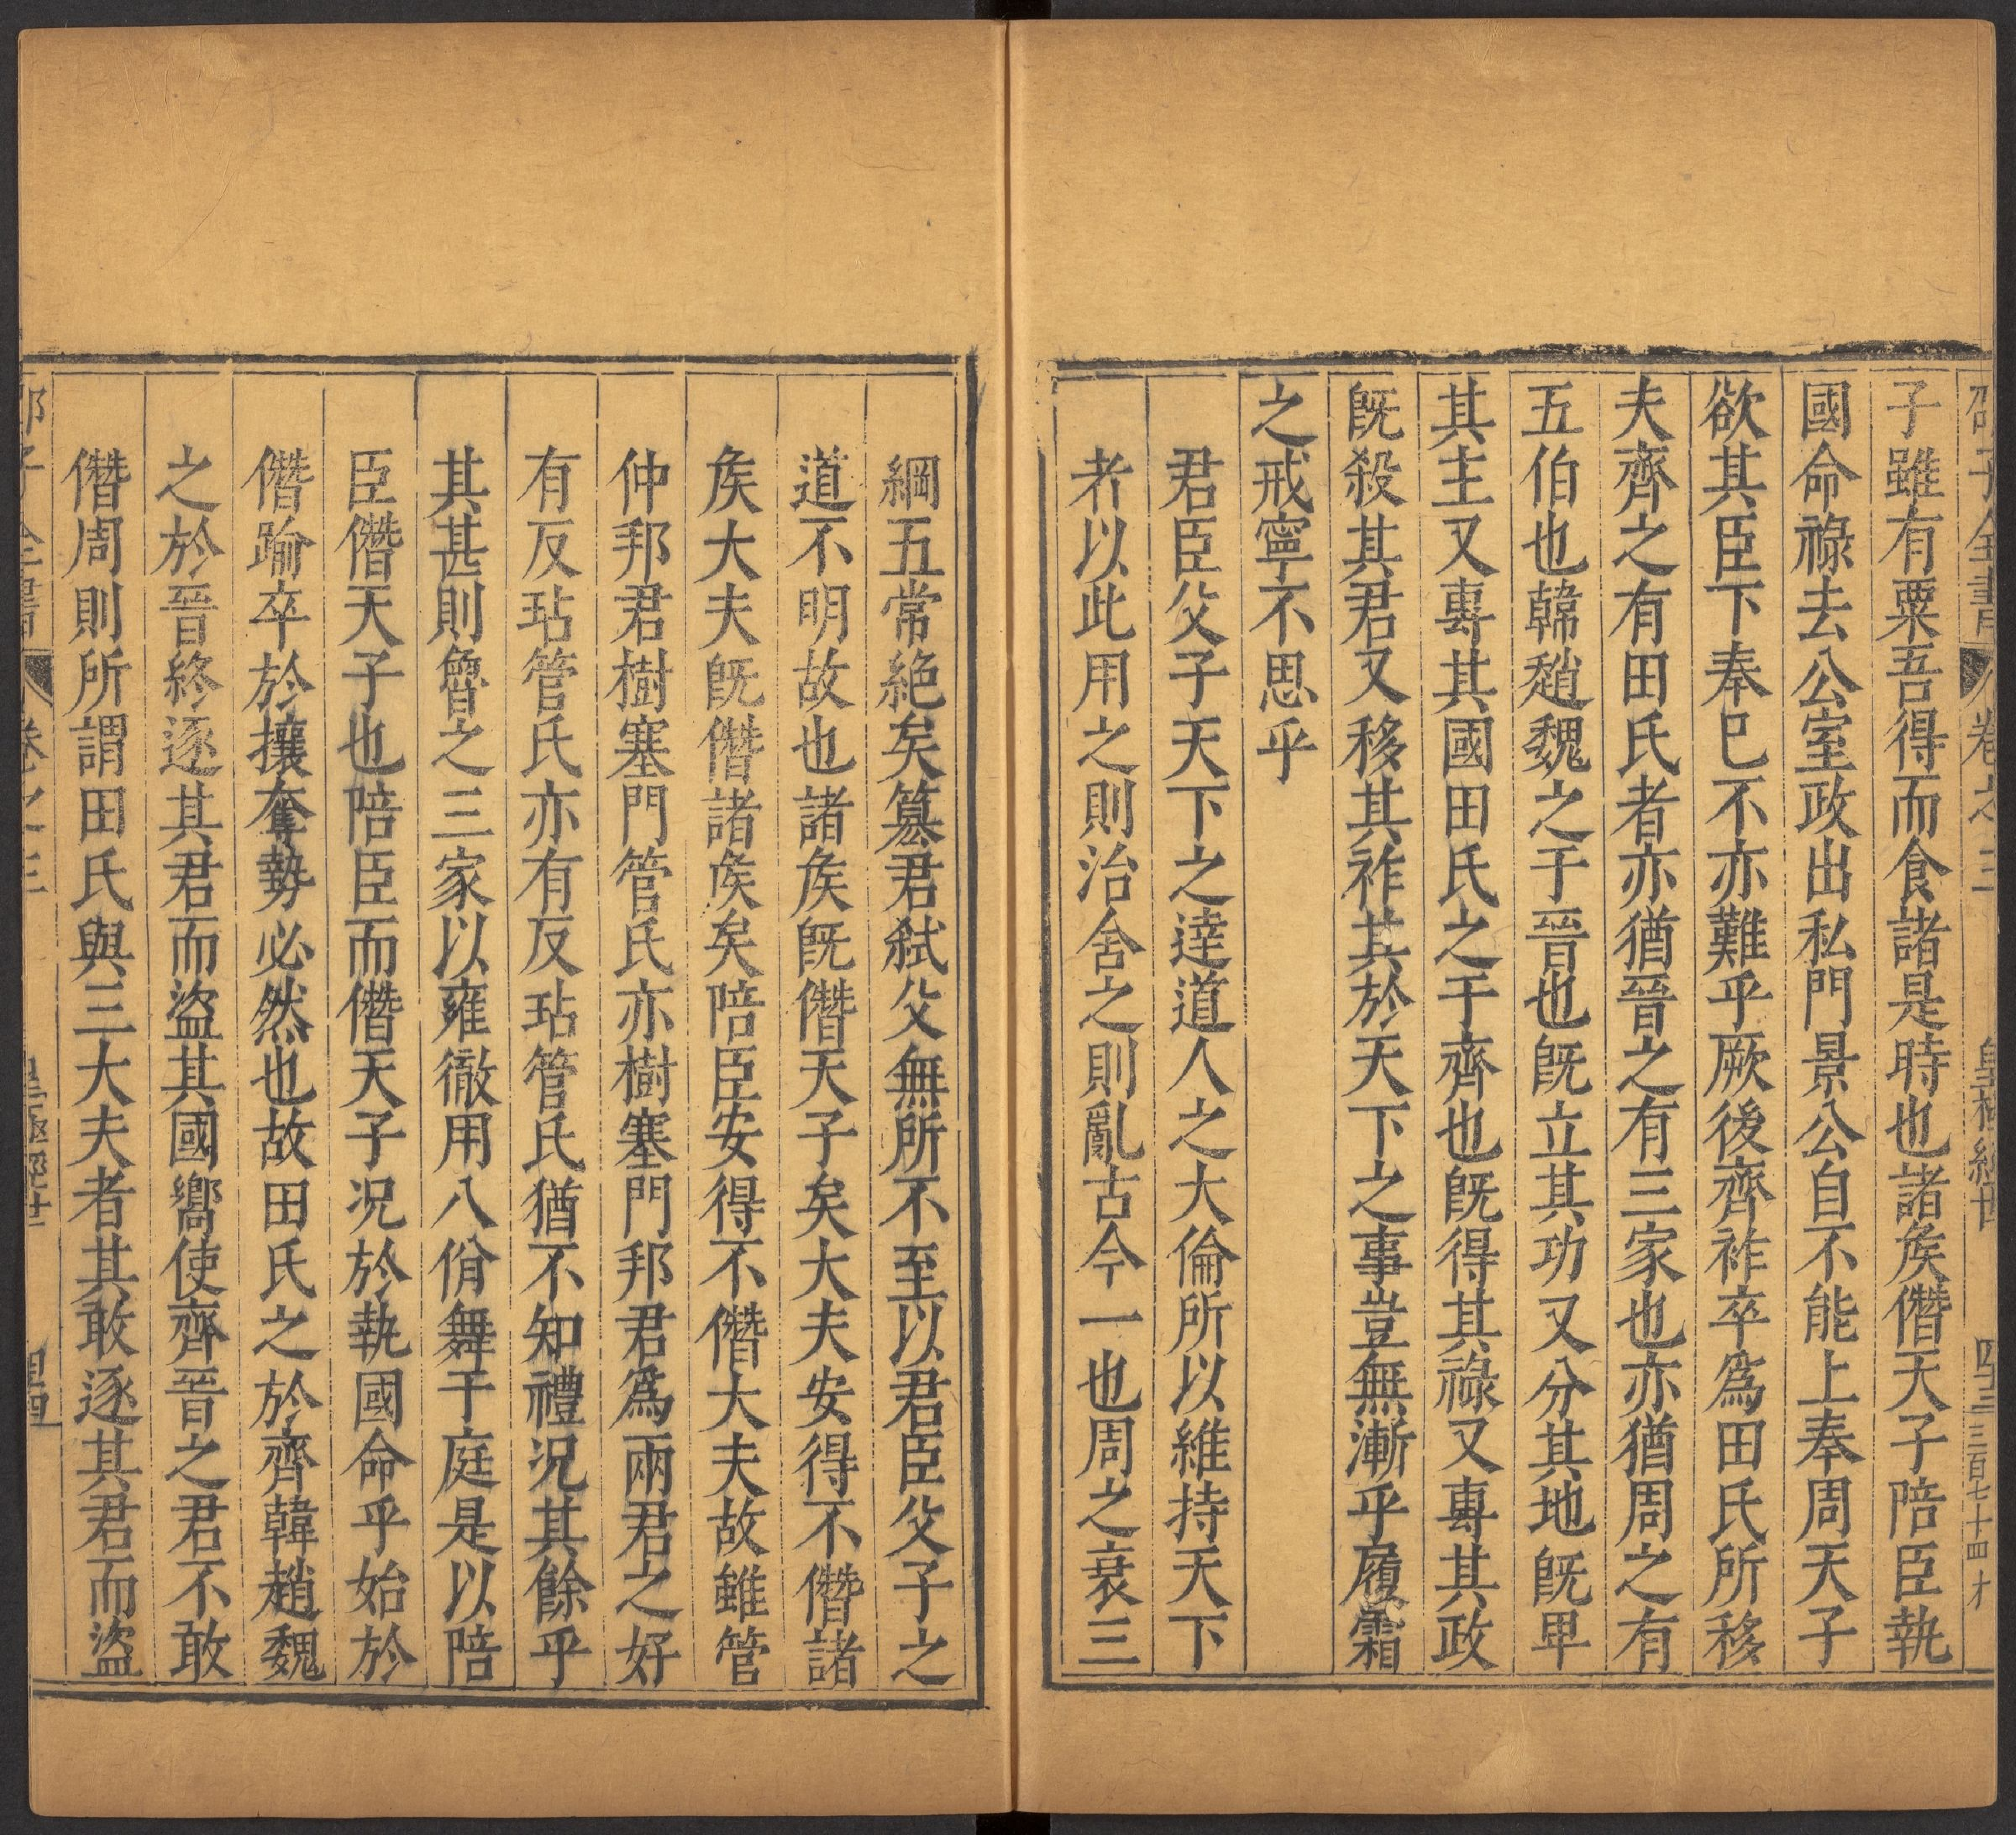 邵子全書 卷之三 皇極經世 四十三 三百七十四 才
子雖有粟吾得而食諸是時也諸矦僭天子陪臣執
國命祿去公室政出私門景公自不能上奉周天子
欲其臣下奉巳不亦難乎厥後齊祚卒爲田氏所移
夫齊之有田氏者亦猶晉之有三家也亦猶周之有
五伯也韓趙魏之于晉也旣立其功又分其地旣卑
其主又專其國田氏之于齊也旣得其祿又專其政
旣殺其君又移其祚其於天下之事豈無漸乎履霜
之戒寧不思乎
君臣父子天下之達道人之大倫所以維持天下
者以此用之則治舍之則亂古今一也周之衰三
綱五常絶矣簒君弑父無所不至以君臣父子之
道不明故也諸矦旣僭天子矣大夫安得不僭諸
矦大夫旣僭諸矦矣陪臣安得不僭大夫故雖管
仲邦君樹塞門管氏亦樹塞門邦君爲兩君之好
有反玷管氏亦有反玷管氏猶不知禮况其餘乎
其甚則魯之三家以雍徹用八佾舞于庭是以陪
臣僭天子也陪臣而僭天子况於執國命乎始於
僭踰卒於攘奪勢必然也故田氏之於齊韓趙魏
之於晉終逐其君而盜其國嚮使齊晉之君不敢
僭周則所謂田氏與三大夫者其敢逐其君而盜
卷之三